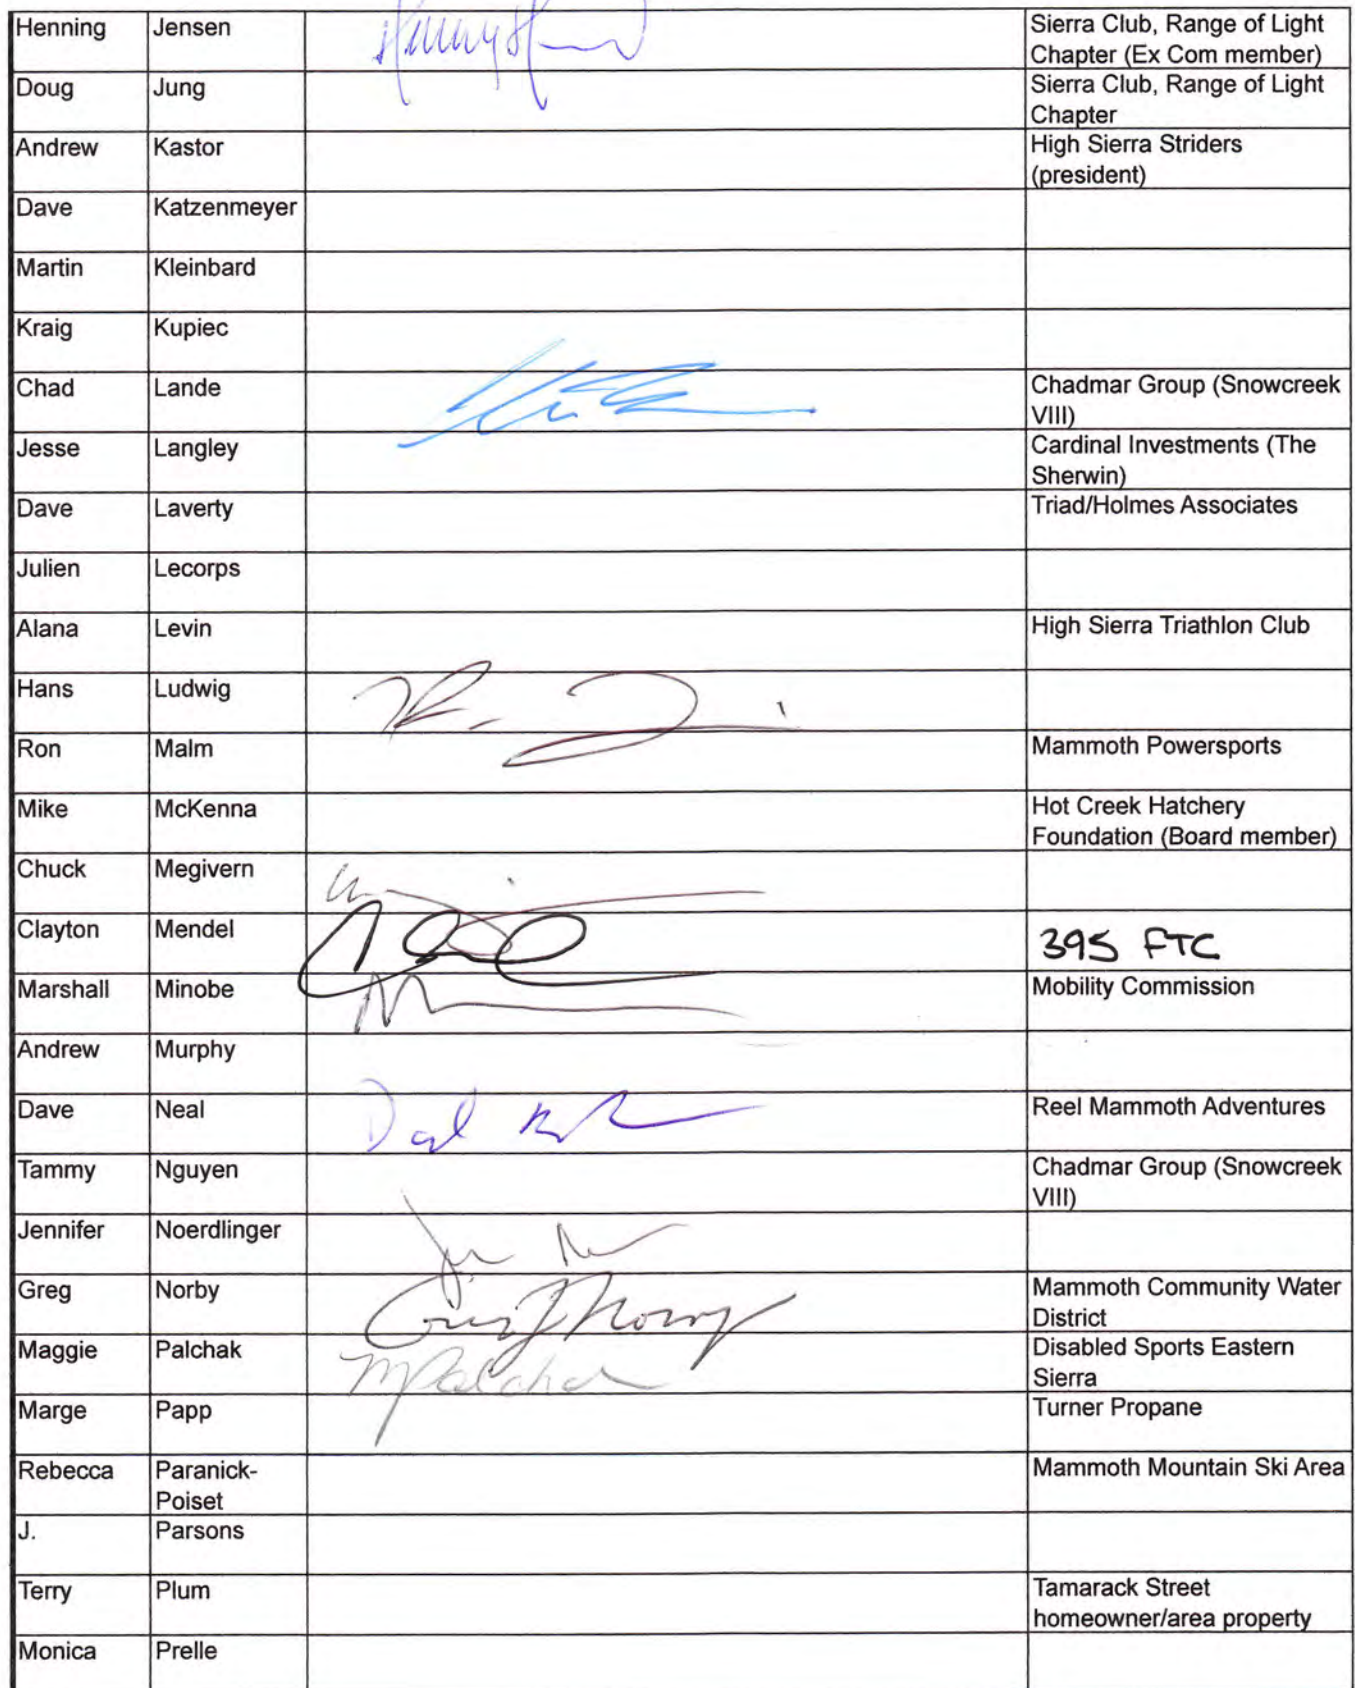 Henning Jensen Sierra Club, Range of Light
Chapter (Ex Com member)
Doug Jung Sierra Club, Range of Light
Chapter
Andrew Kastor High Sierra Striders
(president)
Dave Katzenmeyer
Martin Kleinbard
Kraig Kupiec
Chad Lande Chadmar Group (Snowcreek
VIII)
Jesse Langley Cardinal Investments (The
Sherwin)
Dave Laverty Triad/Holmes Associates
Julien Lecorps
Alana Levin High Sierra Triathlon Club
Hans Ludwig
Ron Malm Mammoth Powersports
Mike McKenna Hot Creek Hatchery
Foundation (Board member)
Chuck Megivern
Clayton Mendel 395 FTC
Marshall Minobe Mobility Commission
Andrew Murphy
Dave Neal Reel Mammoth Adventures
Tammy Nguyen Chadmar Group (Snowcreek
VIII)
Jennifer Noerdlinger
Greg Norby Mammoth Community Water
District
Maggie Palchak MPalchak Disabled Sports Eastern
Sierra
Marge Papp Turner Propane
Rebecca Paranick- Mammoth Mountain Ski Area
Poiset
J. Parsons
Terry Plum Tamarack Street
homeowner/area property
Monica Prelle